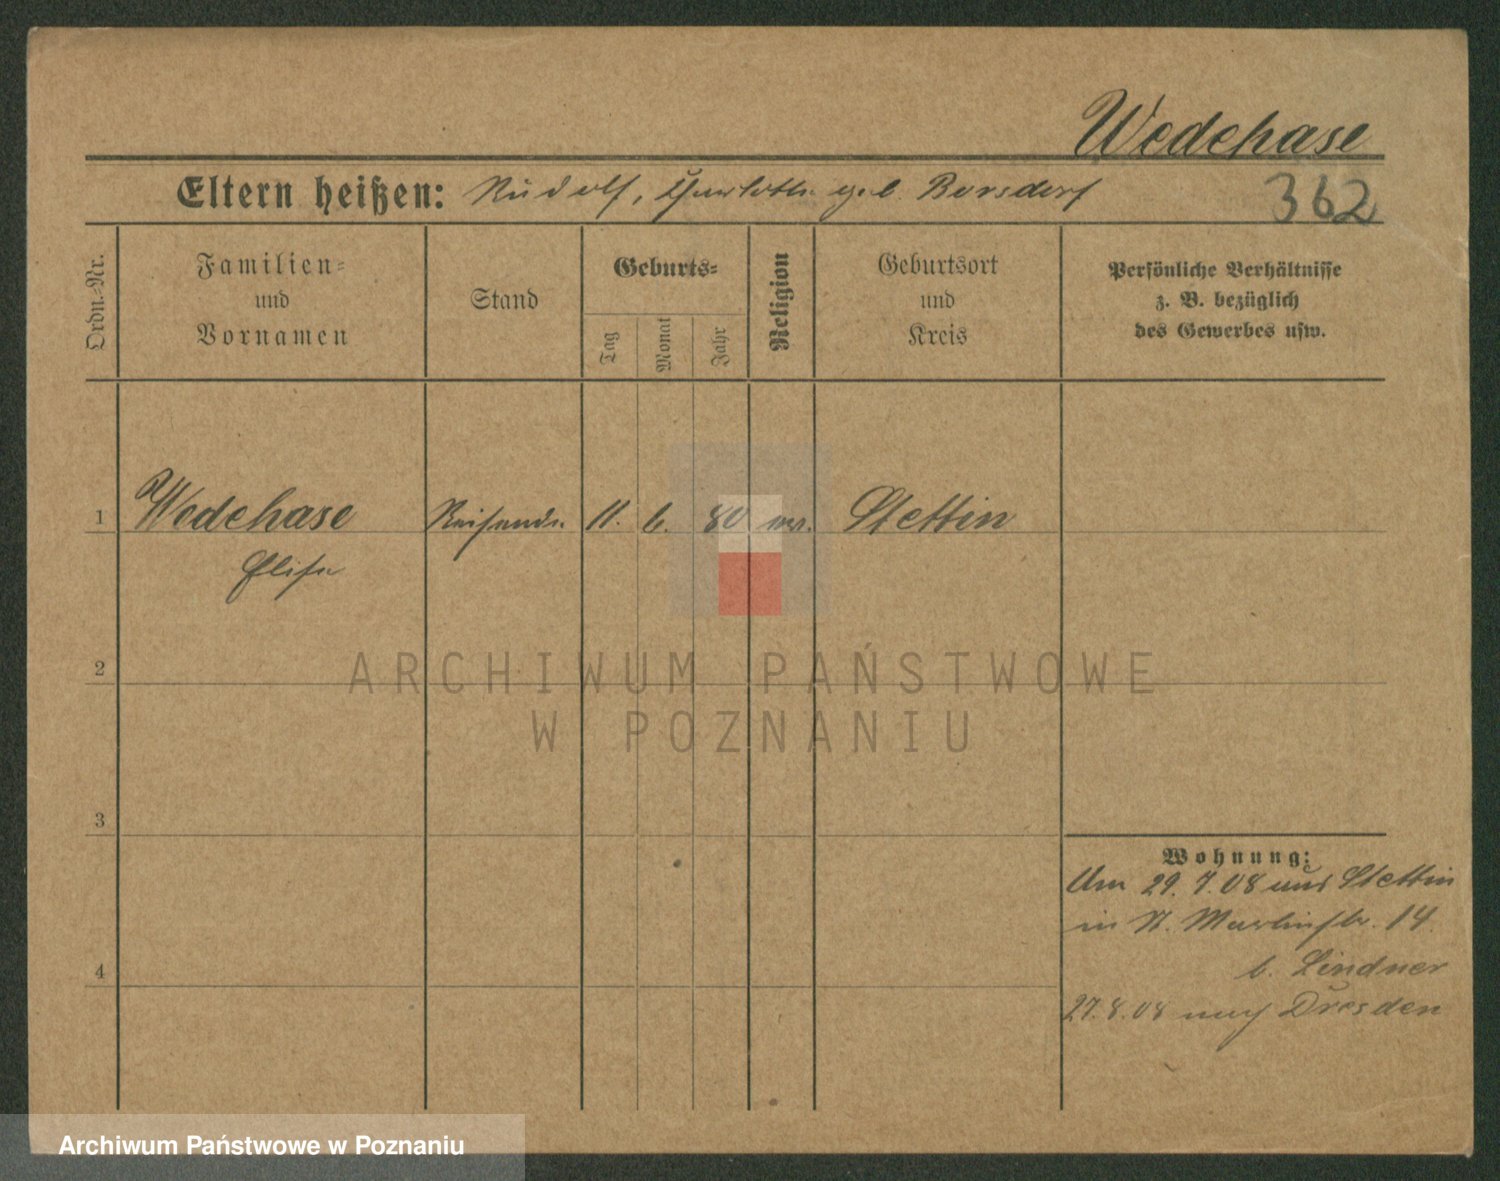 Wedehase
Eltern heißen: Rudolf, Charlotte geb. Borsdorf
362
Ordn.-Nr.
Familien-
und
Vornamen
Stand
Geburts-
Tag
Monat
Jahr
Religion
Geburtsort
und
Kreis
Persönliche Verhältnisse
z. B. bezüglich
des Gewerbes usw.
1 Wedehase Reisende 11. 6. 80 ev. Stettin
Elise
ARCHIWUM PAŃSTWOWE
W POZNANIU
2
3
4
Wohnung:
Am 29. 7. 08 aus Stettin
in St. Martinstr. 14
b. Lindner
27. 8. 08 nach Dresden
Archiwum Państwowe w Poznaniu